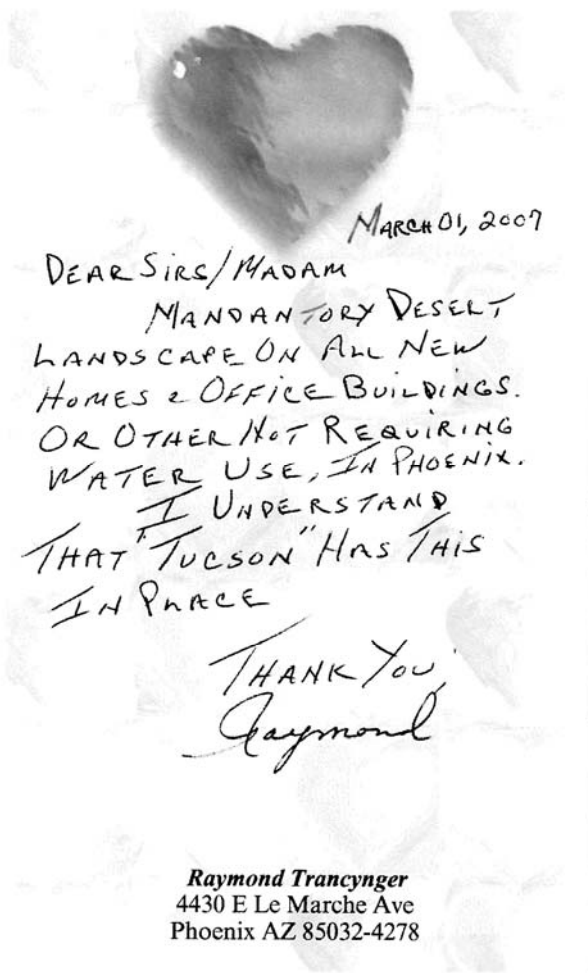 MARCH 01, 2007
DEAR SIRS/MADAM
MANDANTORY DESERT
LANDSCAPE ON ALL NEW
HOMES & OFFICE BUILDINGS.
OR OTHER NOT REQUIRING
WATER USE, IN PHOENIX.
I UNDERSTAND
THAT "TUCSON" HAS THIS
IN PLACE
THANK YOU,
Raymond
Raymond Trancynger
4430 E Le Marche Ave
Phoenix AZ 85032-4278